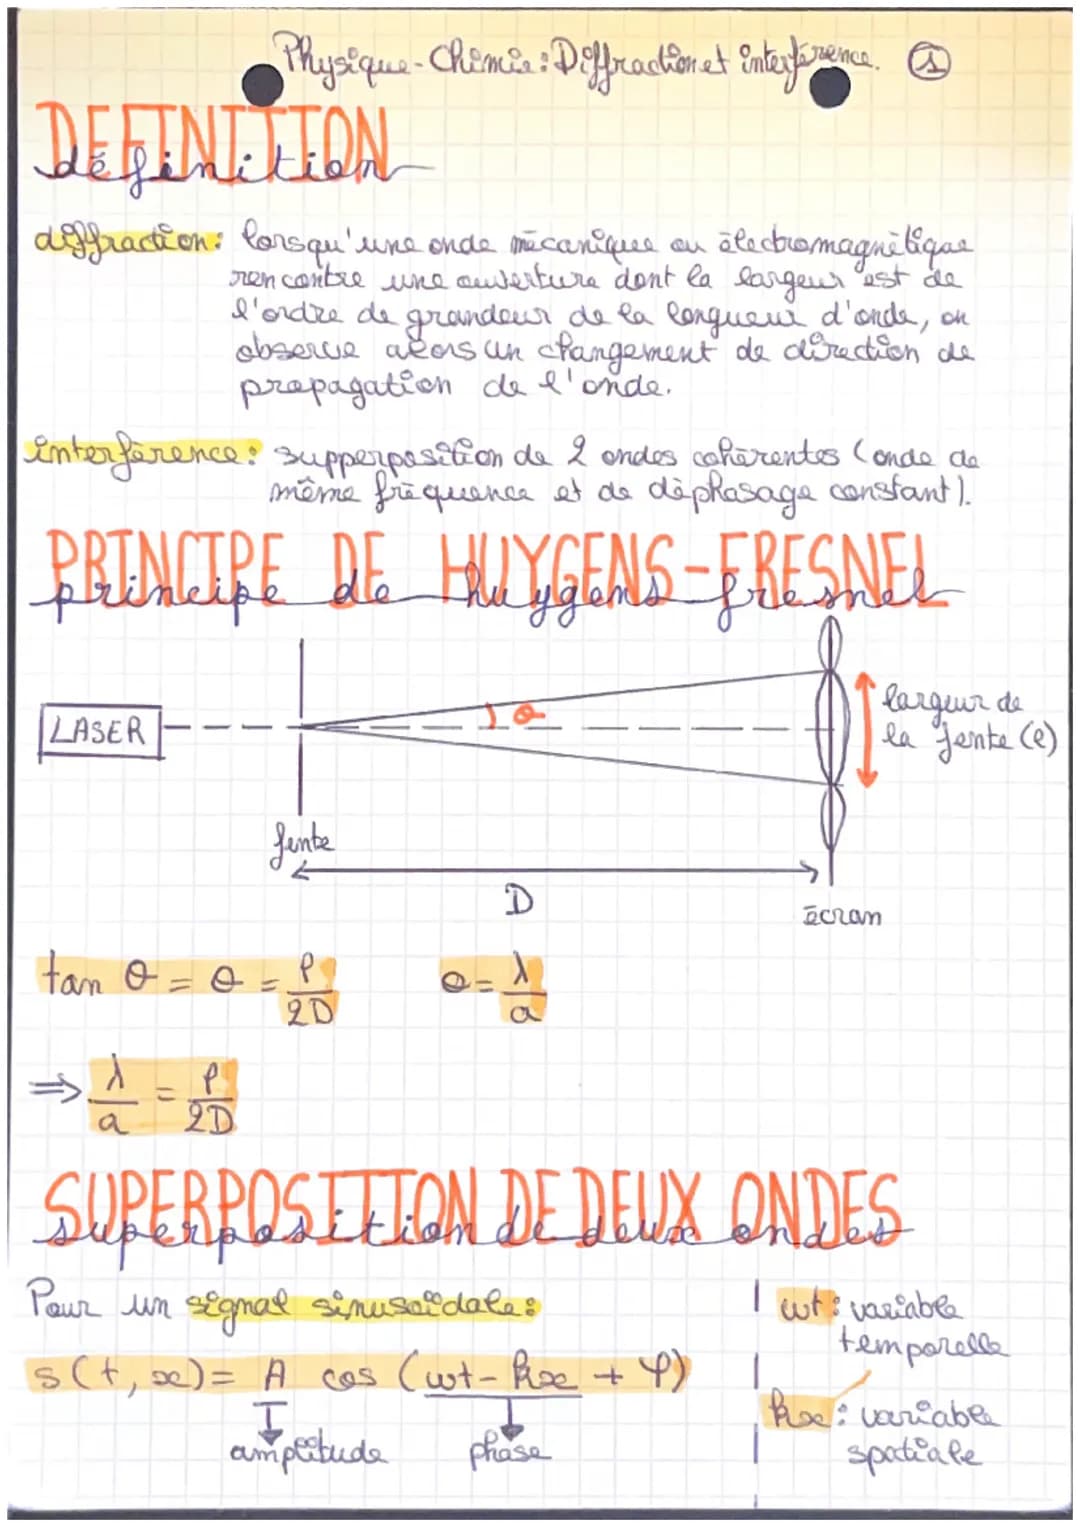 Physique-Chimie: Diffraction et interférence. ①
DEFINITION
définition
diffraction: lorsqu'une onde mécanique ou électromagnétique
rencontre une ouverture dont la largeur est de
l'ordre de grandeur de la longueur d'onde, on
observe alors un changement de direction de
propagation de l'onde.
interférence: supperposition de 2 ondes cohérentes (onde de
même fréquence et de déphasage constant).
PRINCIPE DE HUYGENS-FRESNEL
principe de huygens-fresnel
LASER
θ
largeur de
la fente (l)
fente
D
écran
tan θ = θ = l/2D θ = λ/a
⇒ λ/a = l/2D
SUPERPOSITION DE DEUX ONDES
superposition de deux ondes
Pour un signal sinusoïdale:
s(t, x) = A cos (wt - kx + φ)
amplitude phase
wt: variable
temporelle
kx: variable
spatiale